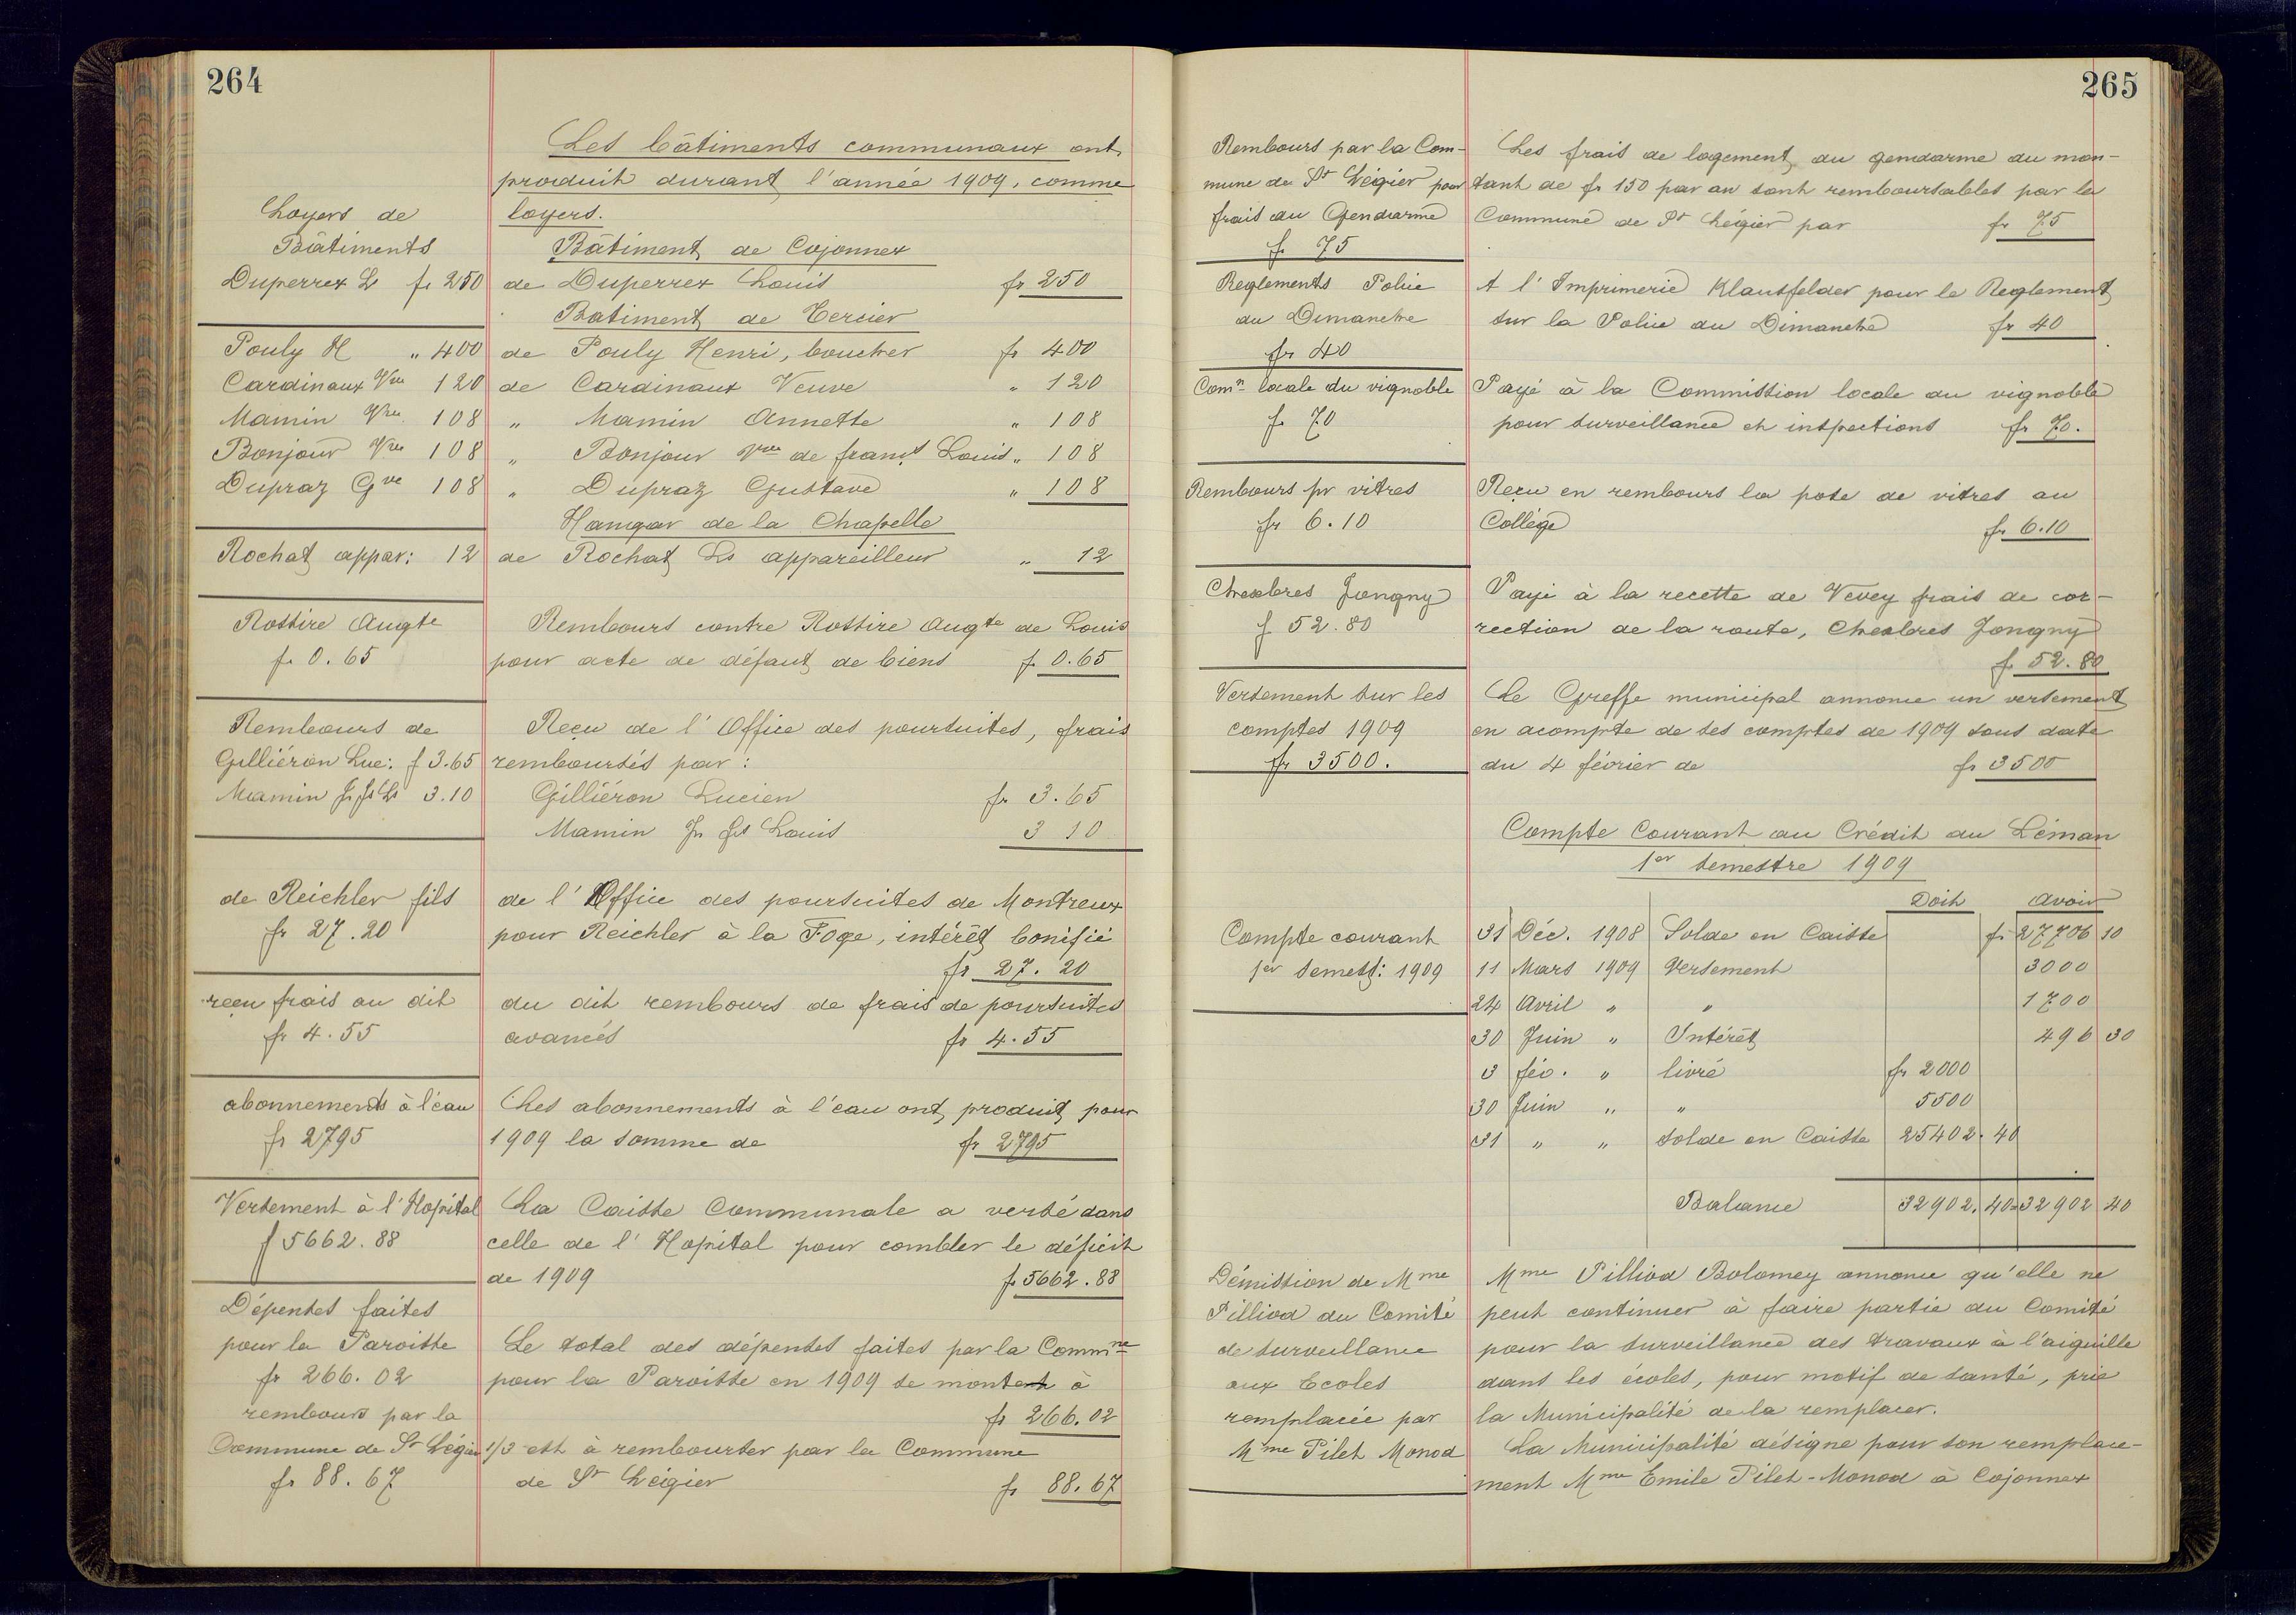 264
Les bâtiments communaux ont
produit durant l'année 1909, comme
loyers.
Loyers de
Bâtiments
Bâtiment de Cojonnex
Duperrex L fr 250
de Duperrex Louis fr 250
Batiment de Tercier
Pouly H " 400
de Pouly Henri, boucher fr 400
Cardinaux Vve 120
de Cardinaux Veuve " 120
Mamin Vve 108
" Mamin Annette " 108
Bonjour Vve 108
" Bonjour Vve de franç.s Louis " 108
Dupraz Gve 108
" Dupraz Gustave " 108
Hangar de la Chapelle
Rochat appar: 12
de Rochat Ls appareilleur " 12
Rossire Augte
fr 0.65
Rembours contre Rossire Augte de Louis
pour acte de défaut de biens fr 0.65
Rembours de
Gilliéron Luc: f 3.65
Mamin Jn fs Ls 3.10
Reçu de l'Office des poursuites, frais
remboursés par :
Gilliéron Lucien fr 3.65
Mamin Jn fs Louis 3 10
de Reichler fils
fr 27.20
de l'Office des poursuites de Montreux
pour Reichler à la Foge, intérêt bonifié
fr 27.20
reçu frais au dit
fr 4.55
du dit rembours de frais de poursuites
avancés fr 4.55
abonnements à l'eau
fr 2795
Les abonnements à l'eau ont produit pour
1909 la somme de fr 2795
Versement à l'Hopital
f 5662.88
La Caisse Communale a versé dans
celle de l'Hopital pour combler le déficit
de 1909 fr 5662.88
Dépenses faites
pour la Paroisse
fr 266.02
rembours par la
Commune de St Légier
fr 88.67
Le total des dépenses faites par la Commne
pour la Paroisse en 1909 se montent à
fr 266.02
1/3 est à rembourser par la Commune
de St Légier fr 88.67
265
Rembours par la Com-
mune de St Légier pour
frais du Gendarme
fr 75
Les frais de logement du gendarme du mon-
tant de fr 150 par an sont remboursables par la
Commune de St Légier par fr 75
Reglements Police
du Dimanche
fr 40
A l'Imprimerie Klausfelder pour le Reglement
sur la Police du Dimanche fr 40
Comn locale du vignoble
fr 70
Payé à la Commission locale du vignoble
pour surveillance et inspections fr 70.
Rembours pr vitres
fr 6.10
Reçu en rembours la pose de vitres au
Collège fr 6.10
Chexbres Jongny
f 52.80
Payé à la recette de Vevey frais de cor-
rection de la route, Chexbres Jongny
fr 52.80
Versement sur les
comptes 1909
fr 3500.
Le Greffe municipal annonce un versement
en acompte de ses comptes de 1909 sous date
du 4 février de fr 3500
Compte Courant au Crédit du Léman
1er semestre 1909
Doit Avoir
Compte courant
1er semest: 1909
31 Déc. 1908 Solde en Caisse fr 27706 10
11 Mars 1909 Versement 3000
24 Avril " " 1700
30 Juin " Intérêt 496 30
3 fév. " livré fr 2000
30 Juin " " 5500
31 " " Solde en Caisse 25402.40
Balance 32902.40 32902 40
Démission de Mme
Pilliod du Comité
de surveillance
aux Ecoles
remplacée par
Mme Pilet Monod
Mme Pilliod Bolomey annonce qu'elle ne
peut continuer à faire partie du Comité
pour la surveillance des travaux à l'aiguille
dans les écoles, pour motif de santé, prie
la Municipalité de la remplacer.
La Municipalité désigne pour son remplace-
ment Mme Emile Pilet-Monod à Cojonnex